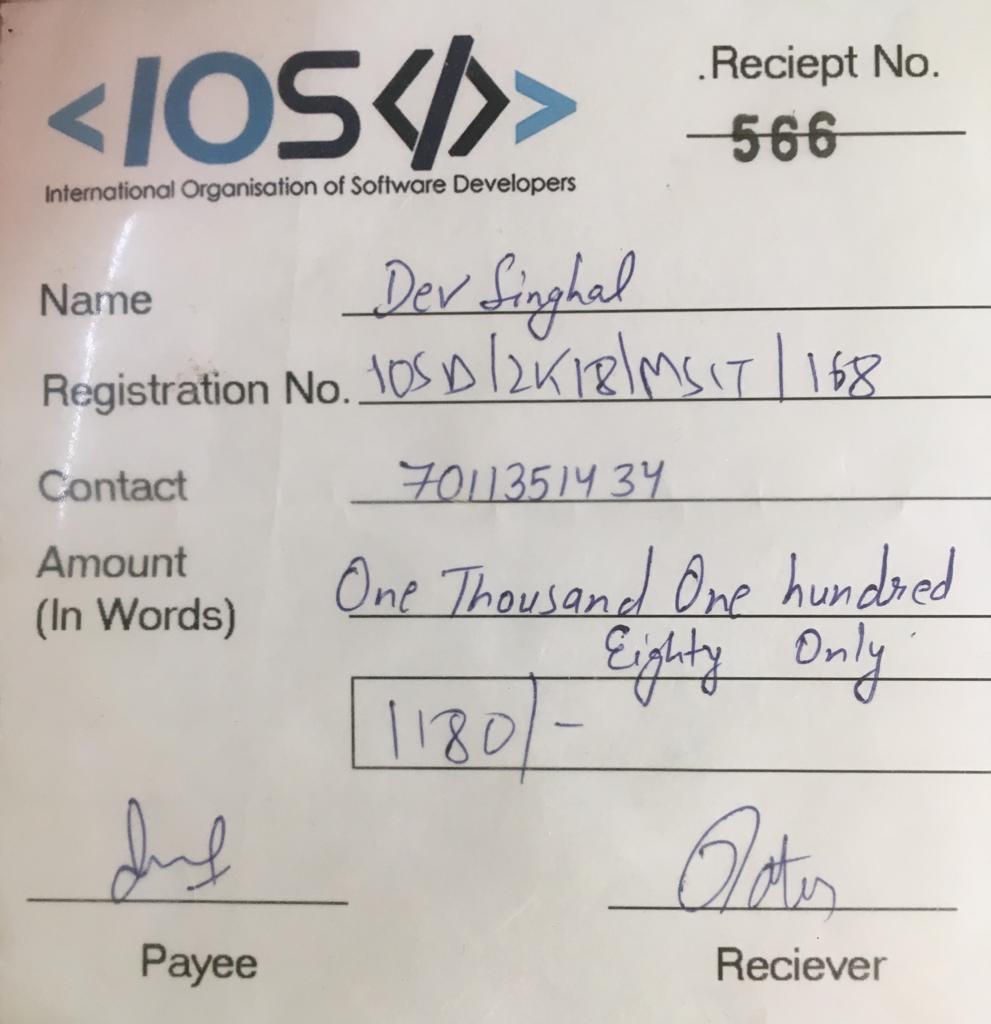 <IOS</>>
.Reciept No.
566
International Organisation of Software Developers
Name Dev Singhal
Registration No. IOSD/2K18/MSIT/168
Contact 7011351434
Amount
(In Words) One Thousand One hundred
Eighty Only
1180/-
Payee Reciever